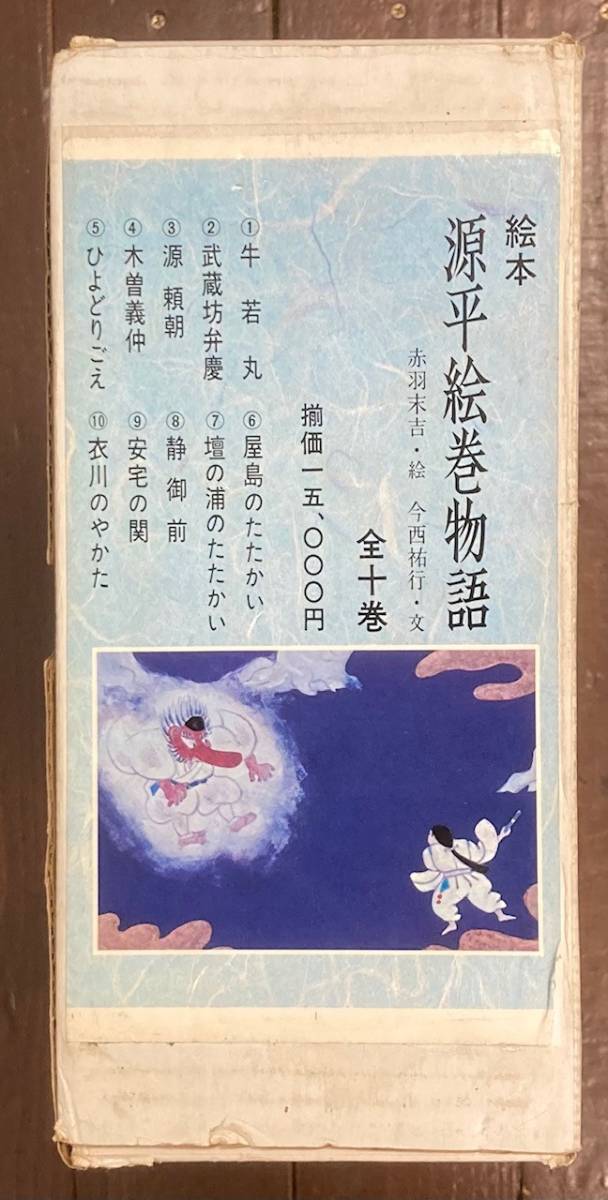 絵本
源平絵巻物語
赤羽末吉・絵　今西祐行・文
全十巻
揃価一五、〇〇〇円
①牛若丸
②武蔵坊弁慶
③源頼朝
④木曽義仲
⑤ひよどりごえ
⑥屋島のたたかい
⑦壇の浦のたたかい
⑧静御前
⑨安宅の関
⑩衣川のやかた